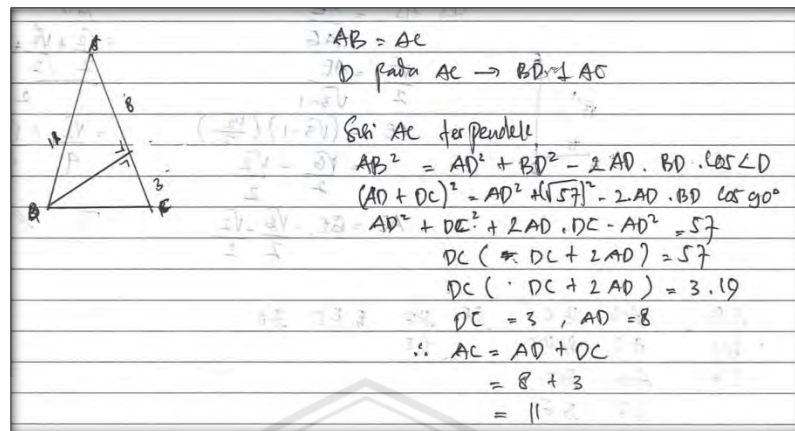 A
8
11
3
B
C
AB = AC
D pada AC → BD ⊥ AC
Sisi AC terpendek
AB² = AD² + BD² - 2 AD . BD . Cos ∠D
(AD + DC)² = AD² + (√57)² - 2 AD . BD cos 90°
AD² + DC² + 2AD . DC - AD² = 57
DC ( DC + 2AD ) = 57
DC ( DC + 2 AD ) = 3.19
DC = 3 , AD = 8
∴ AC = AD + DC
= 8 + 3
= 11